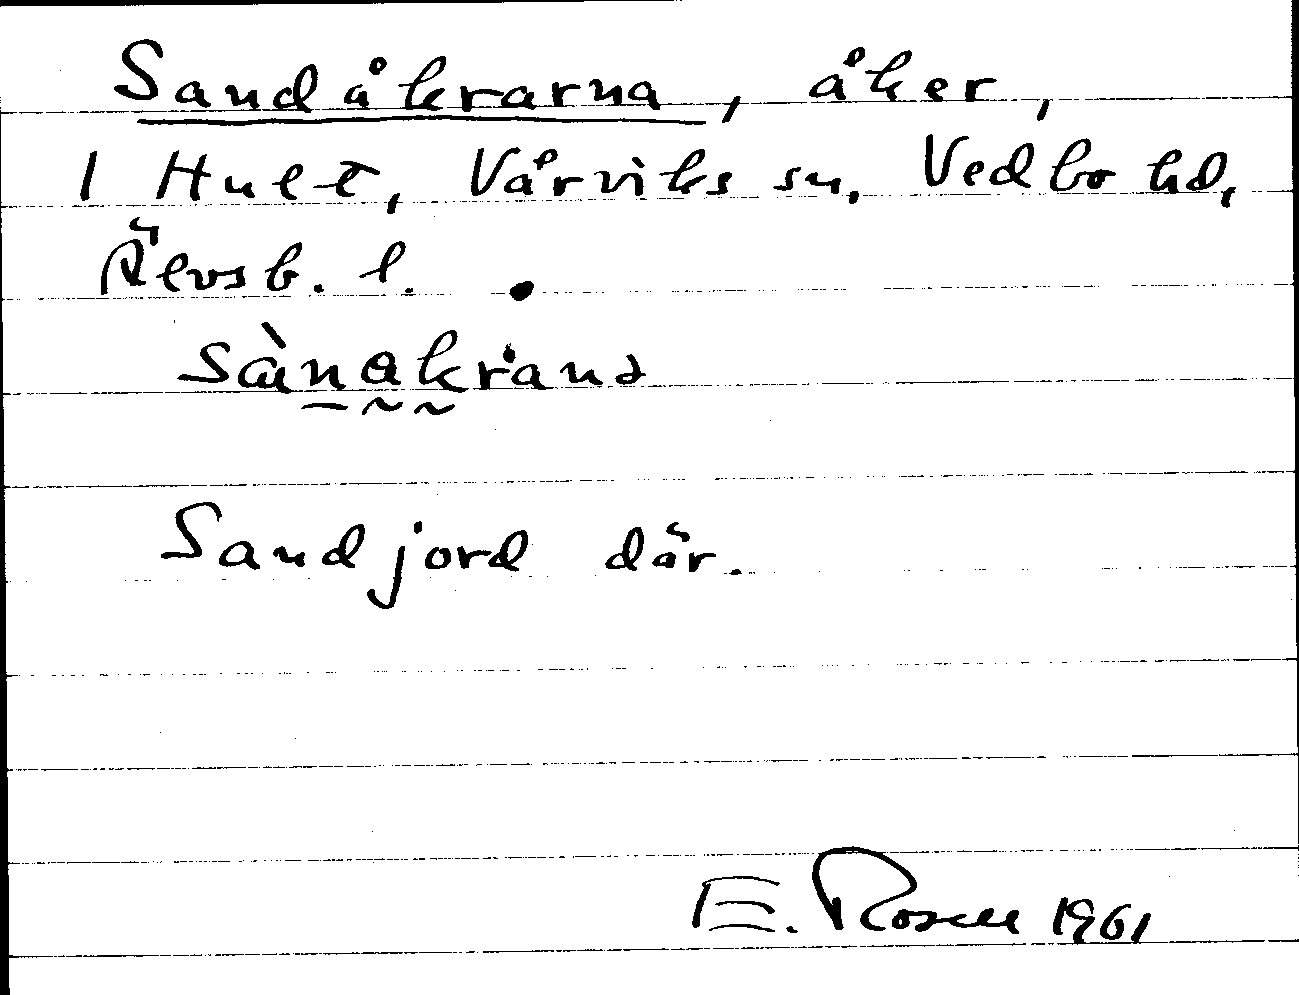 Sandåkrarna, åker,
1 Hult, Vårviks sn, Vedbo hd,
Älvsb. l.
Sandjord där.
E. Rosell 1961